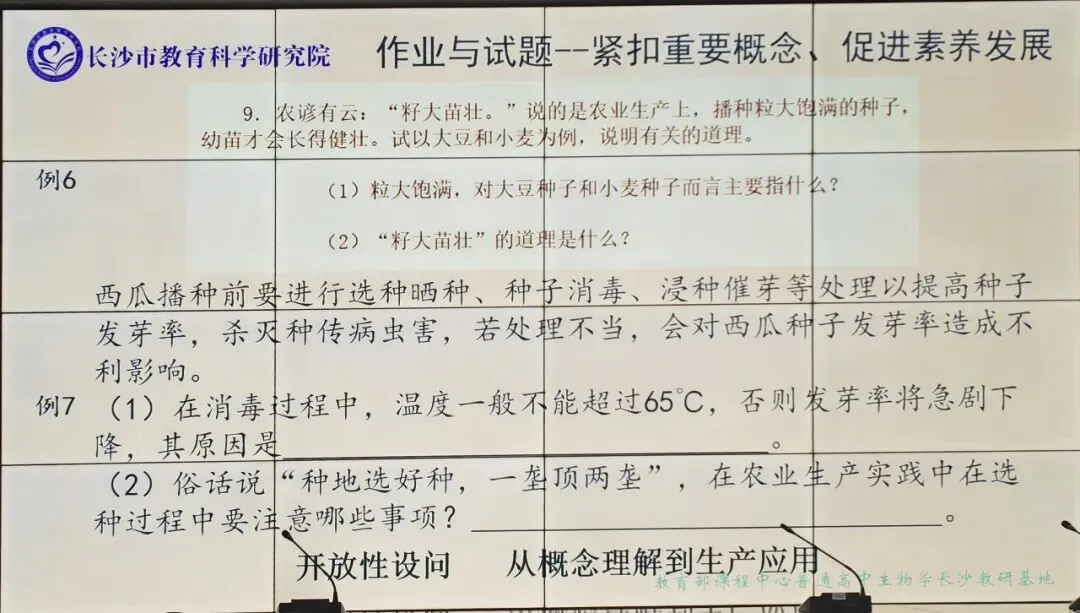 长沙市教育科学研究院
作业与试题--紧扣重要概念、促进素养发展
9. 农谚有云：“籽大苗壮。”说的是农业生产上，播种粒大饱满的种子，
幼苗才会长得健壮。试以大豆和小麦为例，说明有关的道理。
例6
（1）粒大饱满，对大豆种子和小麦种子而言主要指什么？
（2）“籽大苗壮”的道理是什么？
西瓜播种前要进行选种晒种、种子消毒、浸种催芽等处理以提高种子
发芽率，杀灭种传病虫害，若处理不当，会对西瓜种子发芽率造成不
利影响。
例7
（1）在消毒过程中，温度一般不能超过65℃，否则发芽率将急剧下
降，其原因是____________________。
（2）俗话说“种地选好种，一垄顶两垄”，在农业生产实践中在选
种过程中要注意哪些事项？____________________。
开放性设问 从概念理解到生产应用
教育部课程中心普通高中生物学长沙教研基地